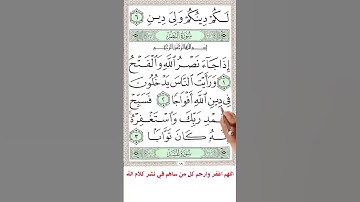 لَكُمْ دِينُكُمْ وَلِيَ دِينِ ٦
سُورَةُ النَّصْرِ
بِسْمِ اللَّهِ الرَّحْمَٰنِ الرَّحِيمِ
إِذَا جَاءَ نَصْرُ اللَّهِ وَالْفَتْحُ
١ وَرَأَيْتَ النَّاسَ يَدْخُلُونَ
فِي دِينِ اللَّهِ أَفْوَاجًا ٢ فَسَبِّحْ
بِحَمْدِ رَبِّكَ وَاسْتَغْفِرْهُ
إِنَّهُ كَانَ تَوَّابًا ٣
سُورَةُ الْمَسَدِ
اللهم اغفر وارحم كل من ساهم في نشر كلام الله